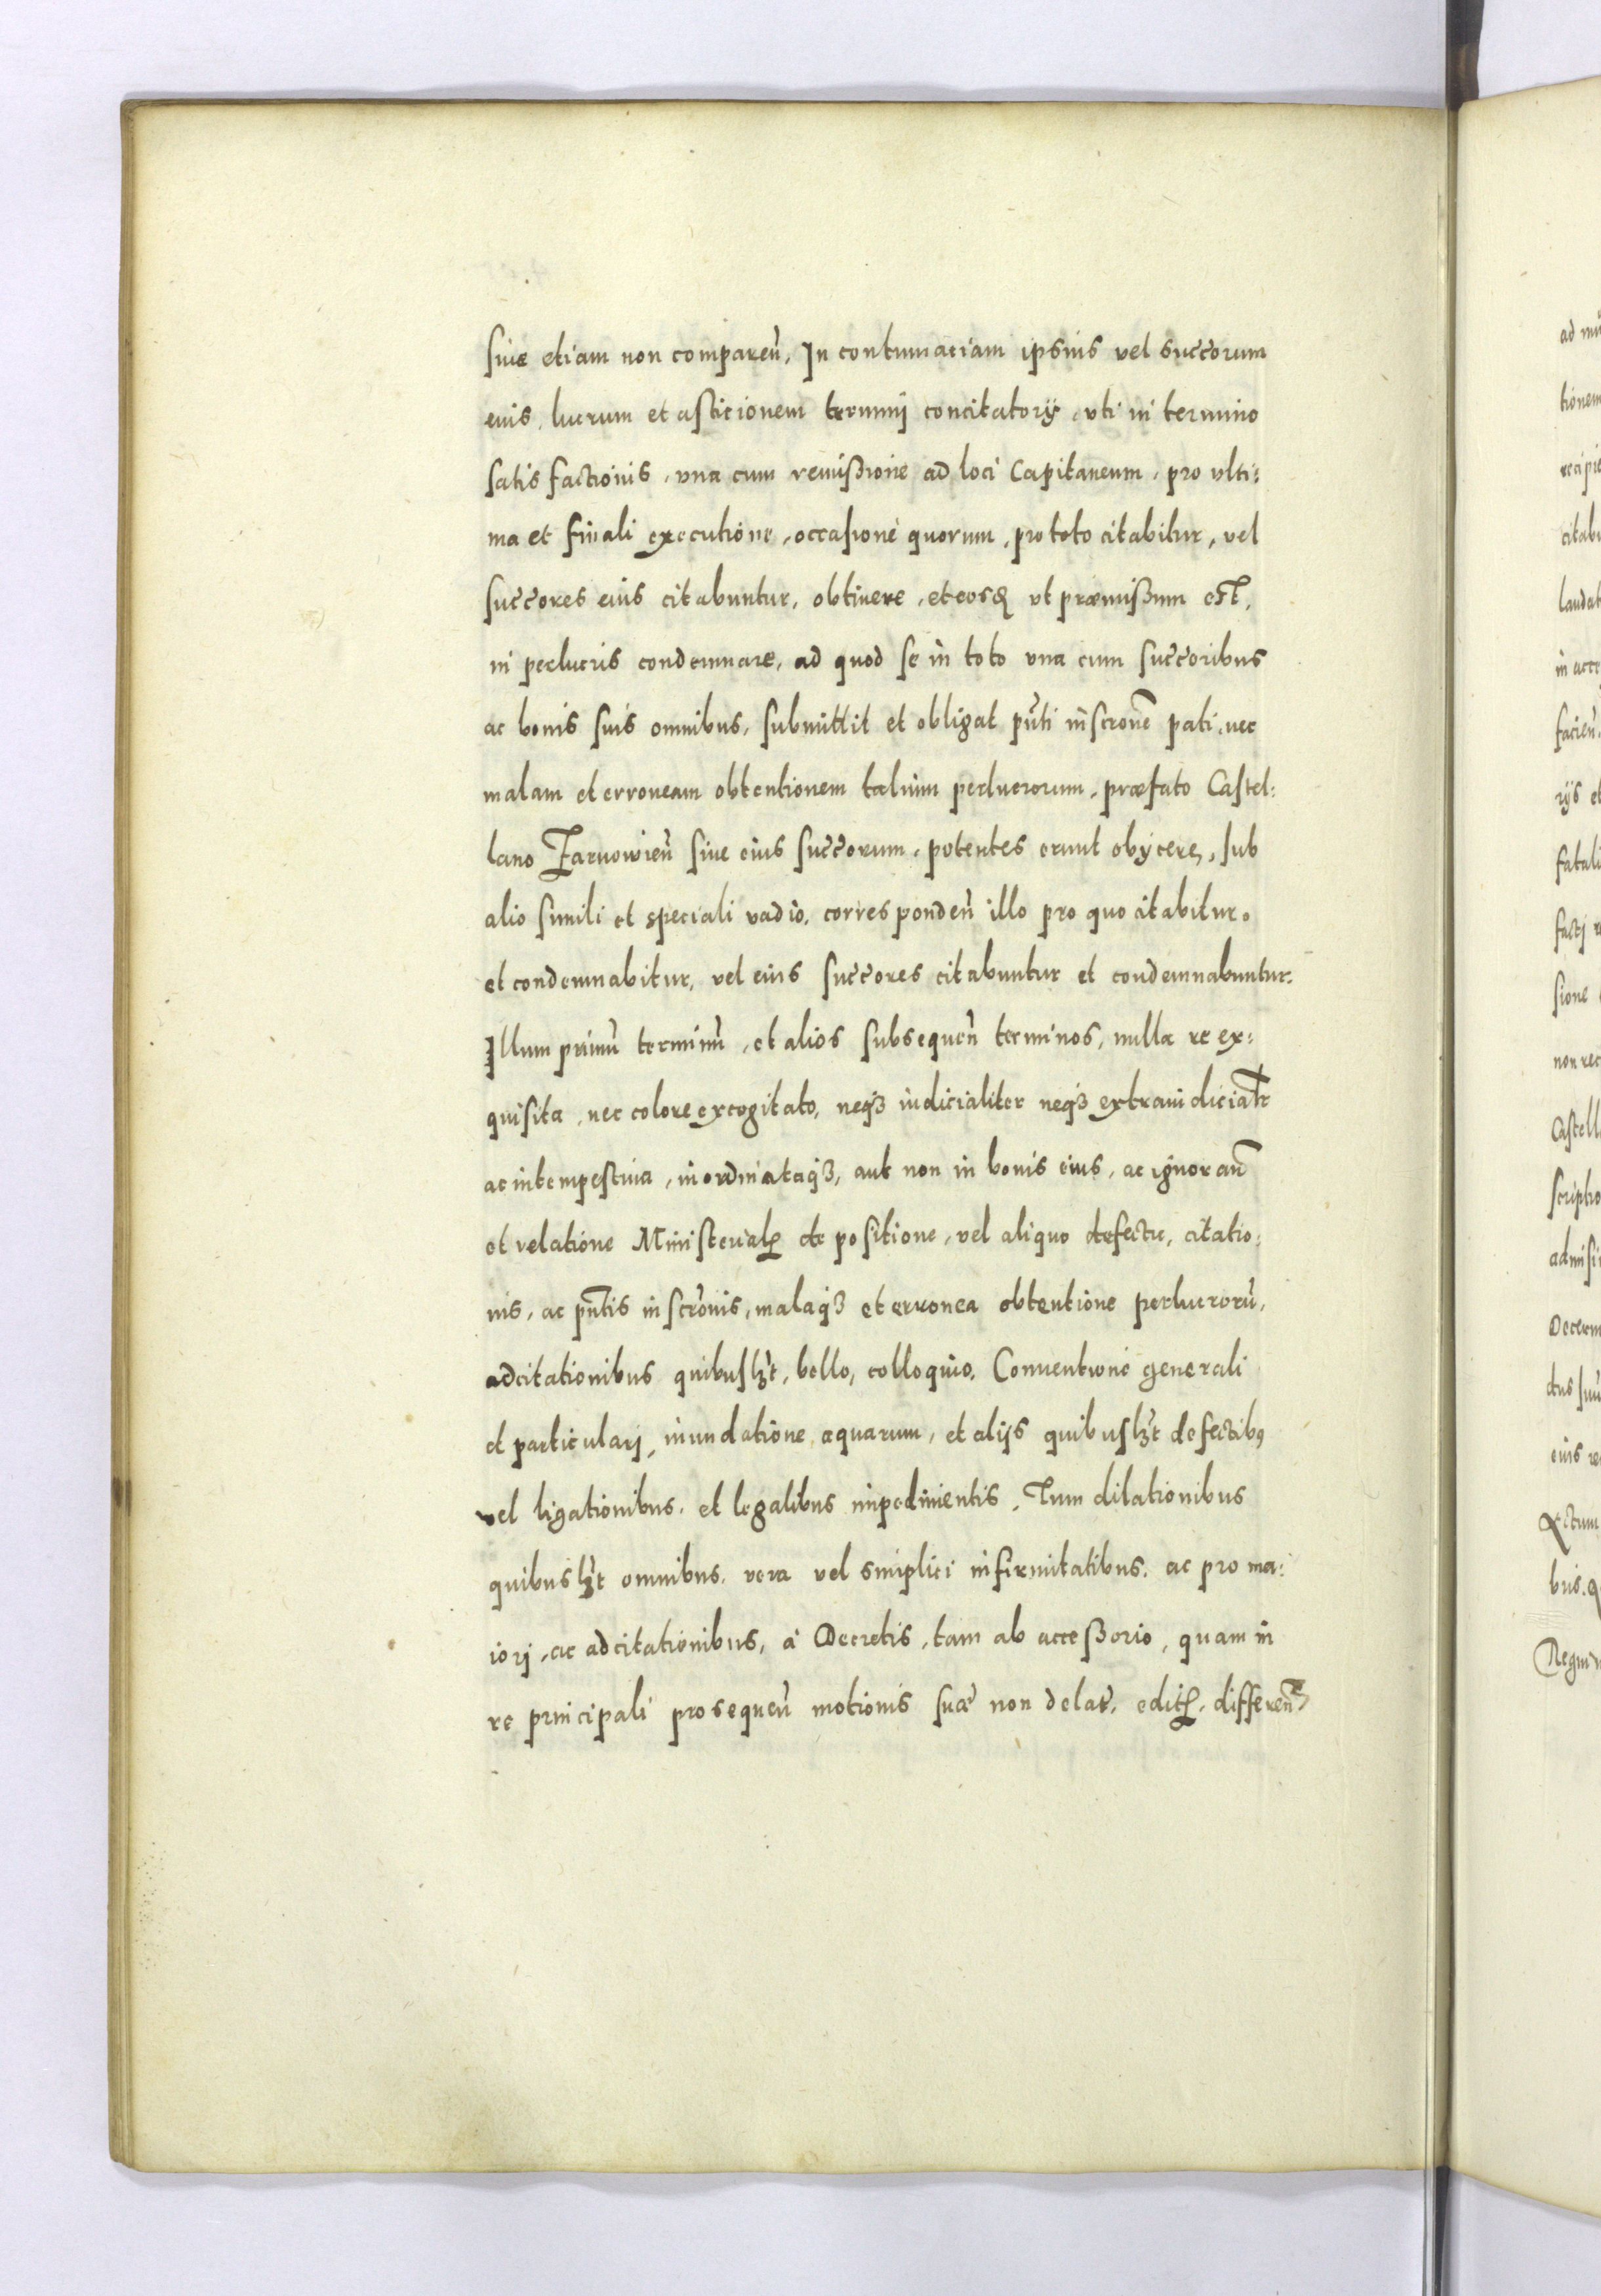 siue etiam non comparen̄. In contumaciam ipsius vel succ̄orum
eius, lucrum et asticionem terminj concitatorij, vti in termino
satisfactionis, vna cum remissione ad loci Capitaneum, pro vlti:
ma et finali executione, occasione quorum, pro toto citabitur, vel
succ̄ores eius citabuntur, obtinere, et eosq; vt præmissum est,
in perlucris condemnare, ad quod se in toto vna cum succ̄oribus
ac bonis suis omnibus, submittit et obligat pn̄ti inscr̄one pati, nec
malam et erroneam obtentionem talium perlucrorum, præfato Castel:
lano Zarnowien̄ siue eius succ̄orum, potentes erunt obijcere, sub
alio simili et speciali vadio, corresponden̄ illo pro quo citabitur.
et condemnabitur, vel eius succ̄ores citabuntur et condemnabuntur.
Illum primū terminū, et alios subsequen̄ terminos, nulla re ex:
quisita, nec colore excogitato, neqȝ iudicialiter neqȝ extraiudicialr̄
ac intempestiua, inordinataqȝ, aut non in bonis eius, ac ignoran̄
et relatione Ministerialꝭ de positione, vel aliquo defectu, citatio:
nis, ac pn̄tis inscr̄onis, malaqȝ et erronea obtentione perlucrorū,
adcitationibus quibuslȝt, bello, colloquio, Conuentione generali
et particularj, inundatione aquarum, et alijs quibuslȝt defectibꝰ
vel ligationibus, et legalibus impedimentis, Tum dilationibus
quibuslȝt omnibus, vera vel simplici infirmitatibus, ac pro ma:
iorj, ac adcitationibus, à Decretis, tam ab accessorio, quam in
re principali prosequen̄ motionis suæ non delat̄, editꝭ, differen̄
ad
tionem
recipie
citabu
laudat
in acce
facien̄.
rijs et
fatali
factj
sione
non rec
Castell
scriptio
admisi
Decerm
ctus suū
eius re
Actum
bus. q
Regni